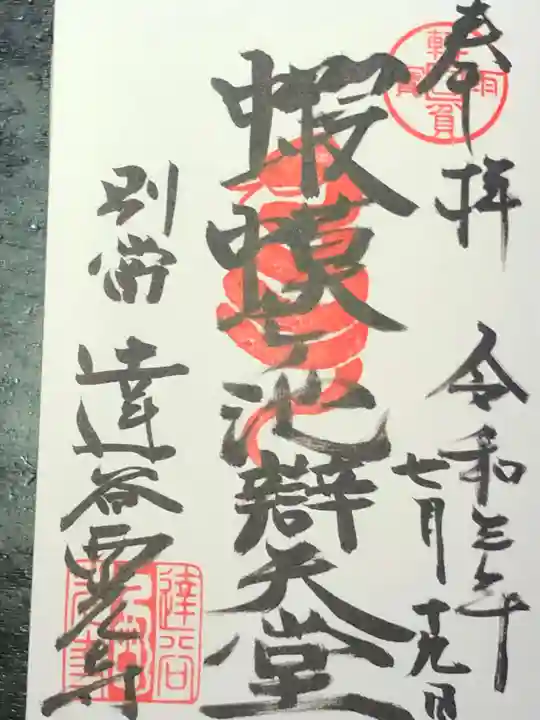 奉拝
令和三年
七月十九日
蝦蟆ヶ池辯天堂
別當 達谷西光寺
達谷